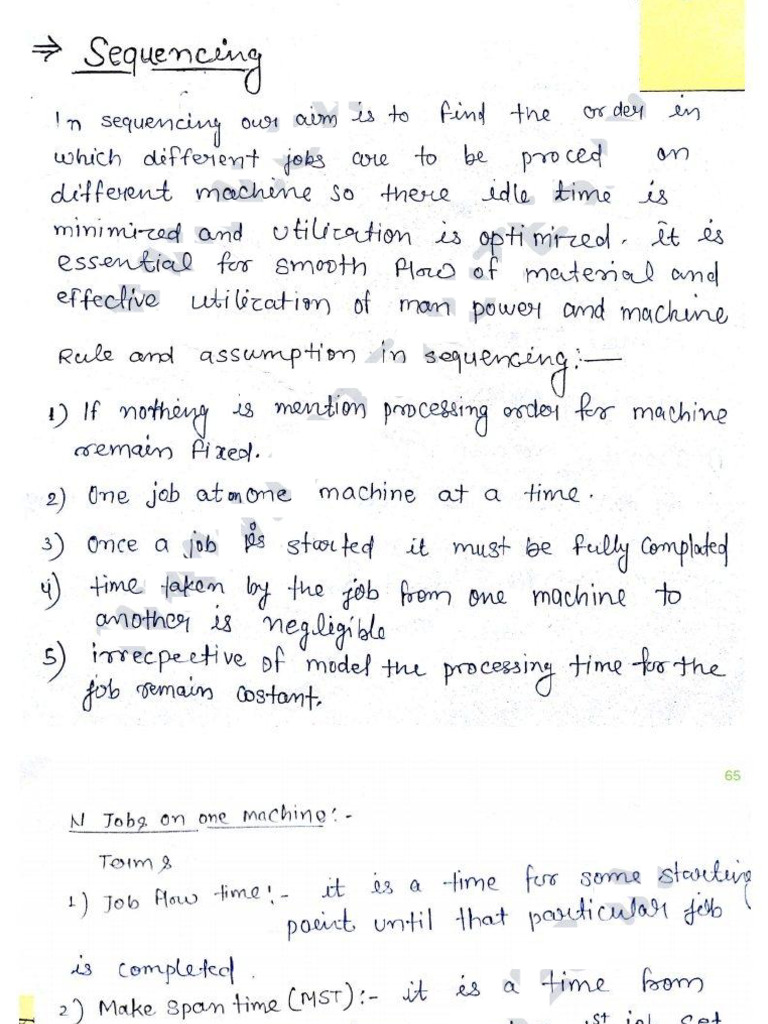 ⇒ Sequencing
In sequencing our aim is to find the order in
which different jobs are to be proced on
different machine so there idle time is
minimized and utilization is optimized. it is
essential for smooth flow of material and
effective utilization of man power and machine
Rule and assumption in sequencing:—
1) If nothing is mention processing order for machine
remain fixed.
2) One job at on one machine at a time.
3) Once a job is started it must be fully complated
4) time taken by the job from one machine to
another is negligible
5) irrecpective of model the processing time for the
job remain costant.
65
N Jobs on one machine:-
Terms
1) Job flow time:- it is a time for some starting
point until that particular job
is completed.
2) Make span time (MST):- it is a time from
1st job set